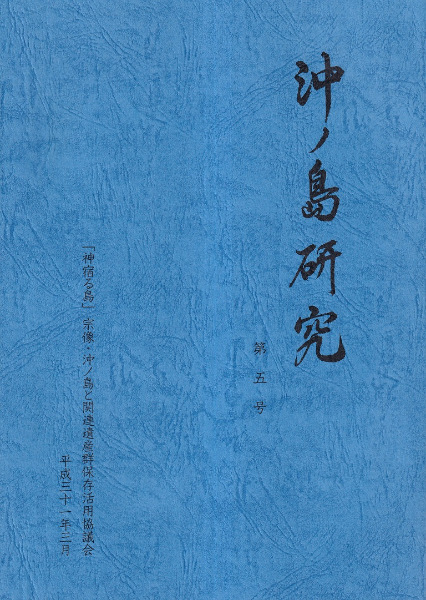 沖ノ島研究
第五号
「神宿る島」宗像・沖ノ島と関連遺産群保存活用協議会
平成三十一年三月